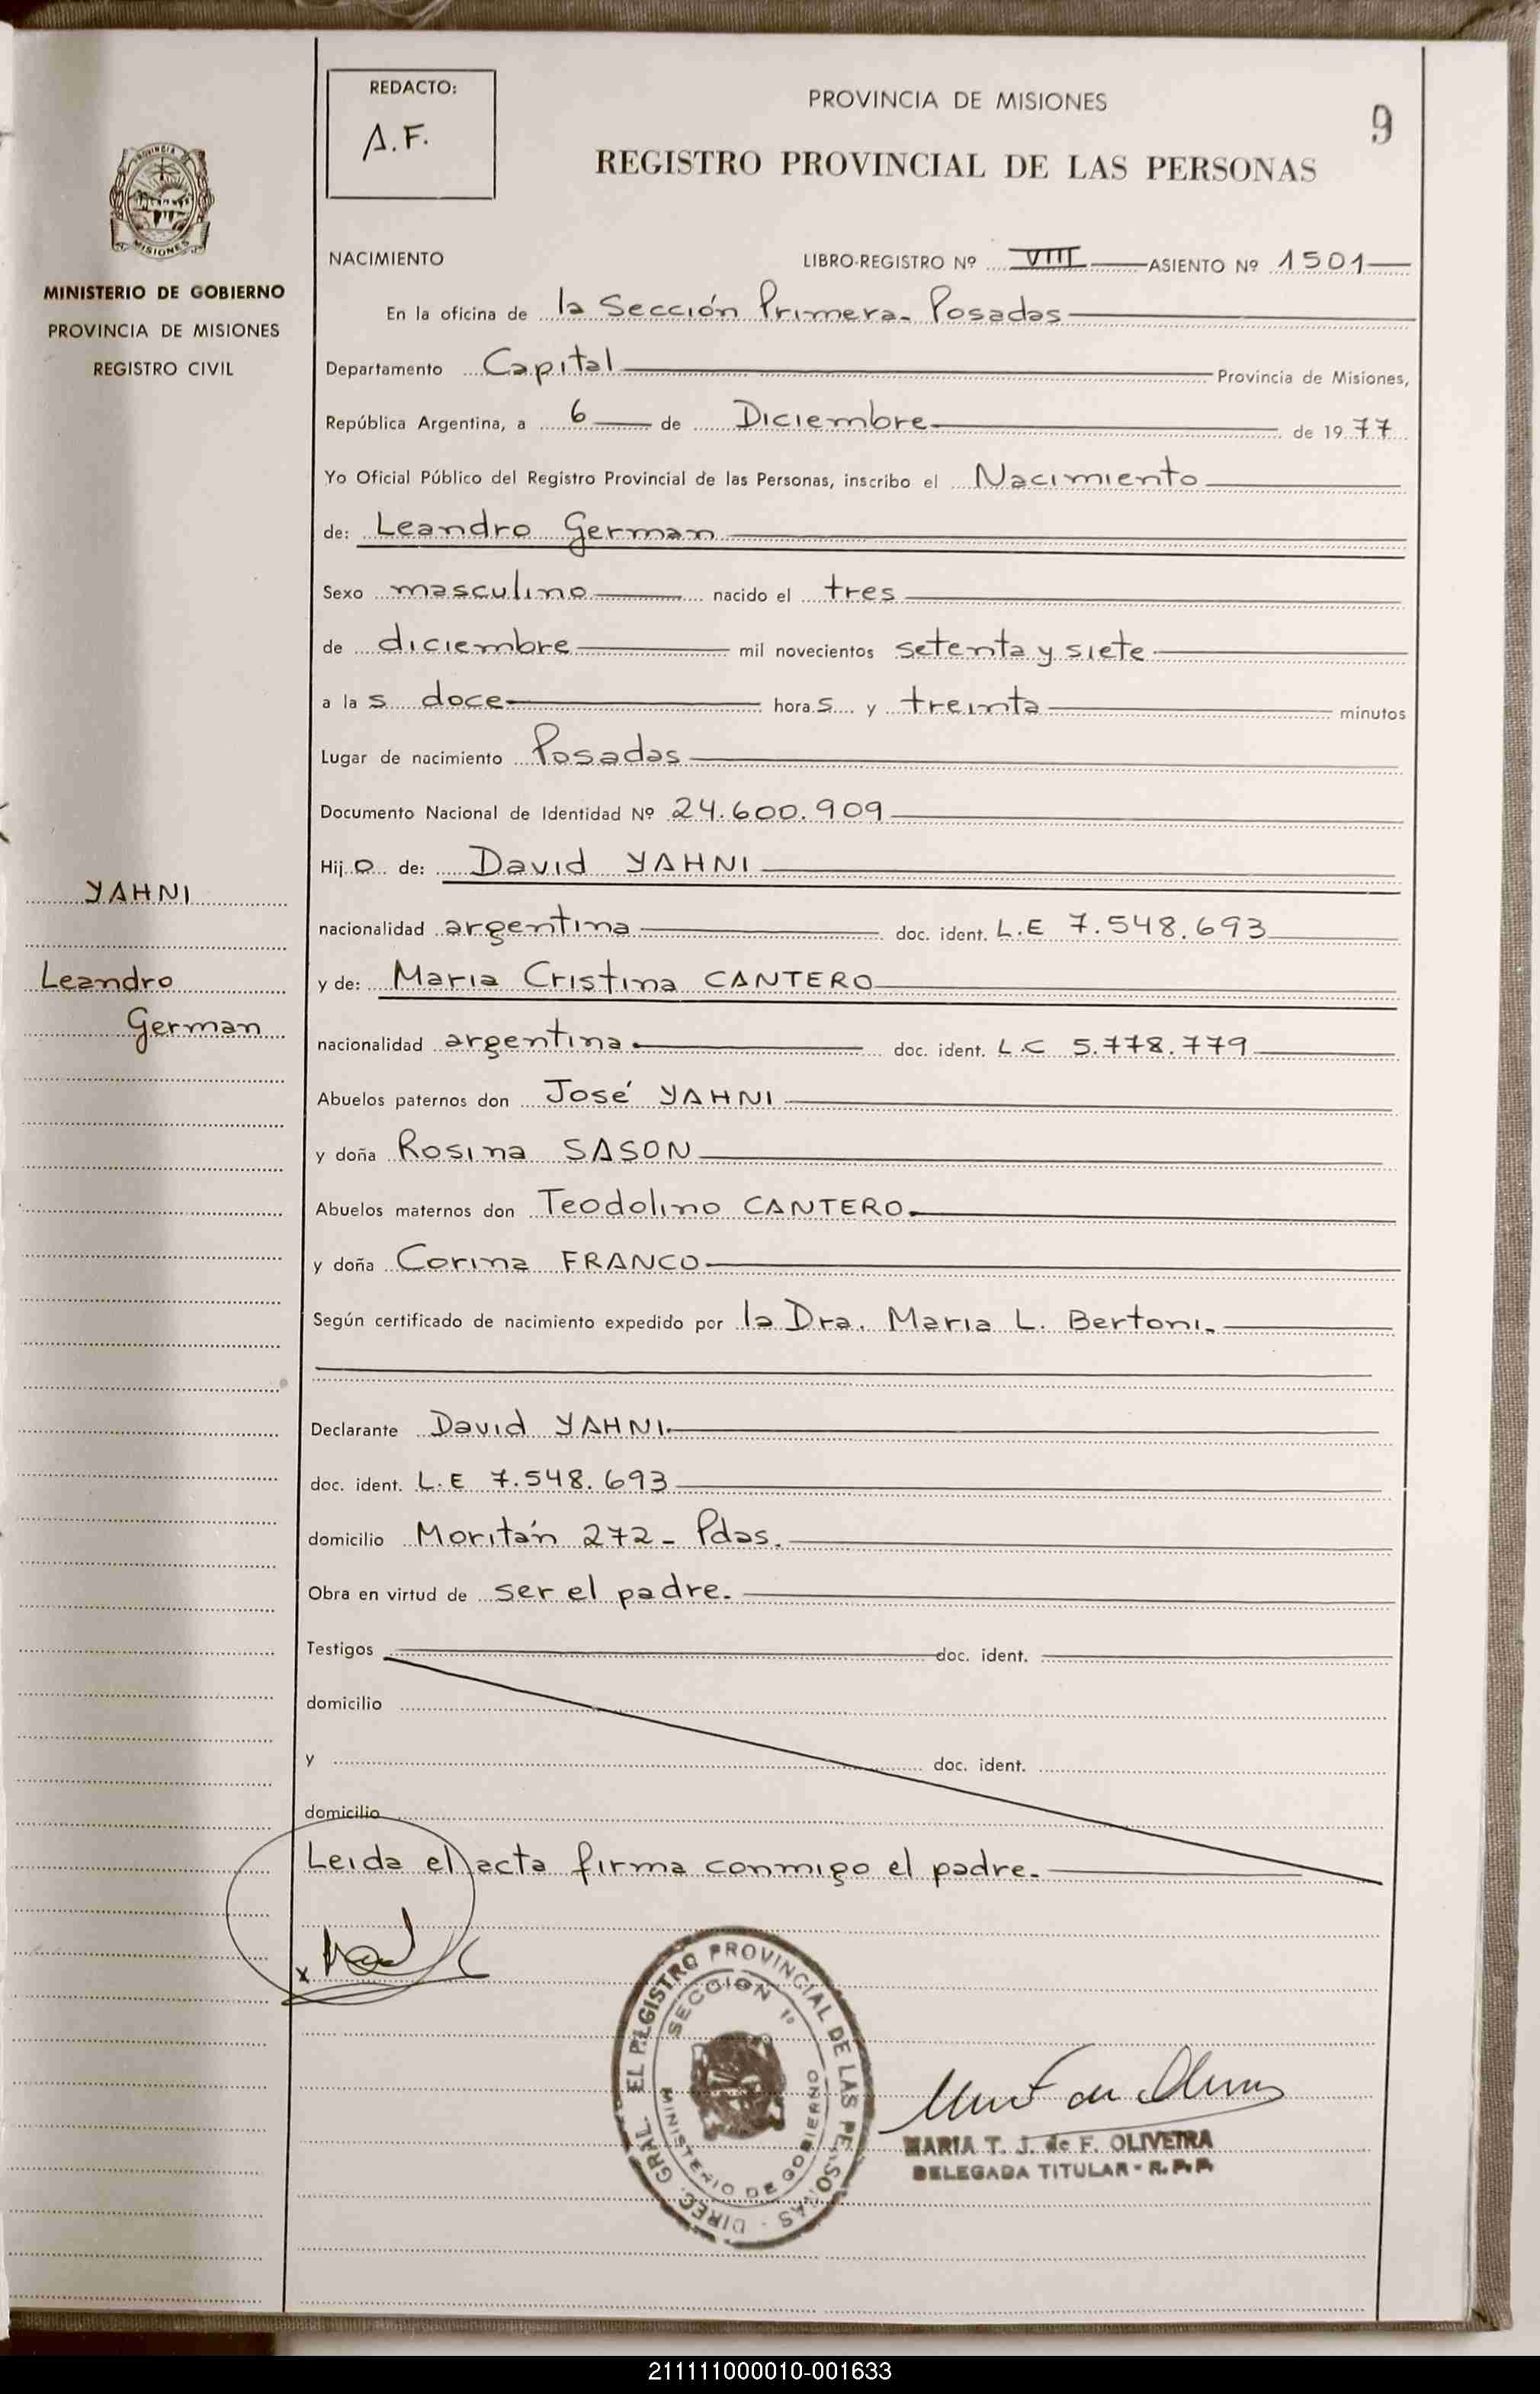 REDACTO:
A.F.
PROVINCIA DE MISIONES
9
REGISTRO PROVINCIAL DE LAS PERSONAS
PROVINCIA DE
MISIONES
MINISTERIO DE GOBIERNO
PROVINCIA DE MISIONES
REGISTRO CIVIL
NACIMIENTO LIBRO-REGISTRO Nº VIII ASIENTO Nº 1501
En la oficina de la Sección Primera - Posadas
Departamento Capital Provincia de Misiones,
República Argentina, a 6 de Diciembre de 1977
Yo Oficial Público del Registro Provincial de las Personas, inscribo el Nacimiento
de: Leandro German
Sexo masculino nacido el tres
de diciembre mil novecientos setenta y siete
a las doce horas y treinta minutos
Lugar de nacimiento Posadas
Documento Nacional de Identidad Nº 24.600.909
Hijo de: David YAHNI
YAHNI
nacionalidad argentina doc. ident. L.E 7.548.693
Leandro
y de: Maria Cristina CANTERO
German
nacionalidad argentina doc. ident. L.C 5.778.779
Abuelos paternos don José YAHNI
y doña Rosina SASON
Abuelos maternos don Teodolino CANTERO
y doña Corina FRANCO
Según certificado de nacimiento expedido por la Dra. Maria L. Bertoni.
Declarante David YAHNI
doc. ident. L.E 7.548.693
domicilio Moritán 272 - Pdas.
Obra en virtud de ser el padre.
Testigos doc. ident.
domicilio
y doc. ident.
domicilio
Leida el acta firma conmigo el padre.
x
DIREC. GRAL. EL REGISTRO PROVINCIAL DE LAS PERSONAS
SECCION 1º
MINISTERIO DE GOBIERNO
MARIA T. J. de F. OLIVEIRA
DELEGADA TITULAR - R.P.P.
211111000010-001633